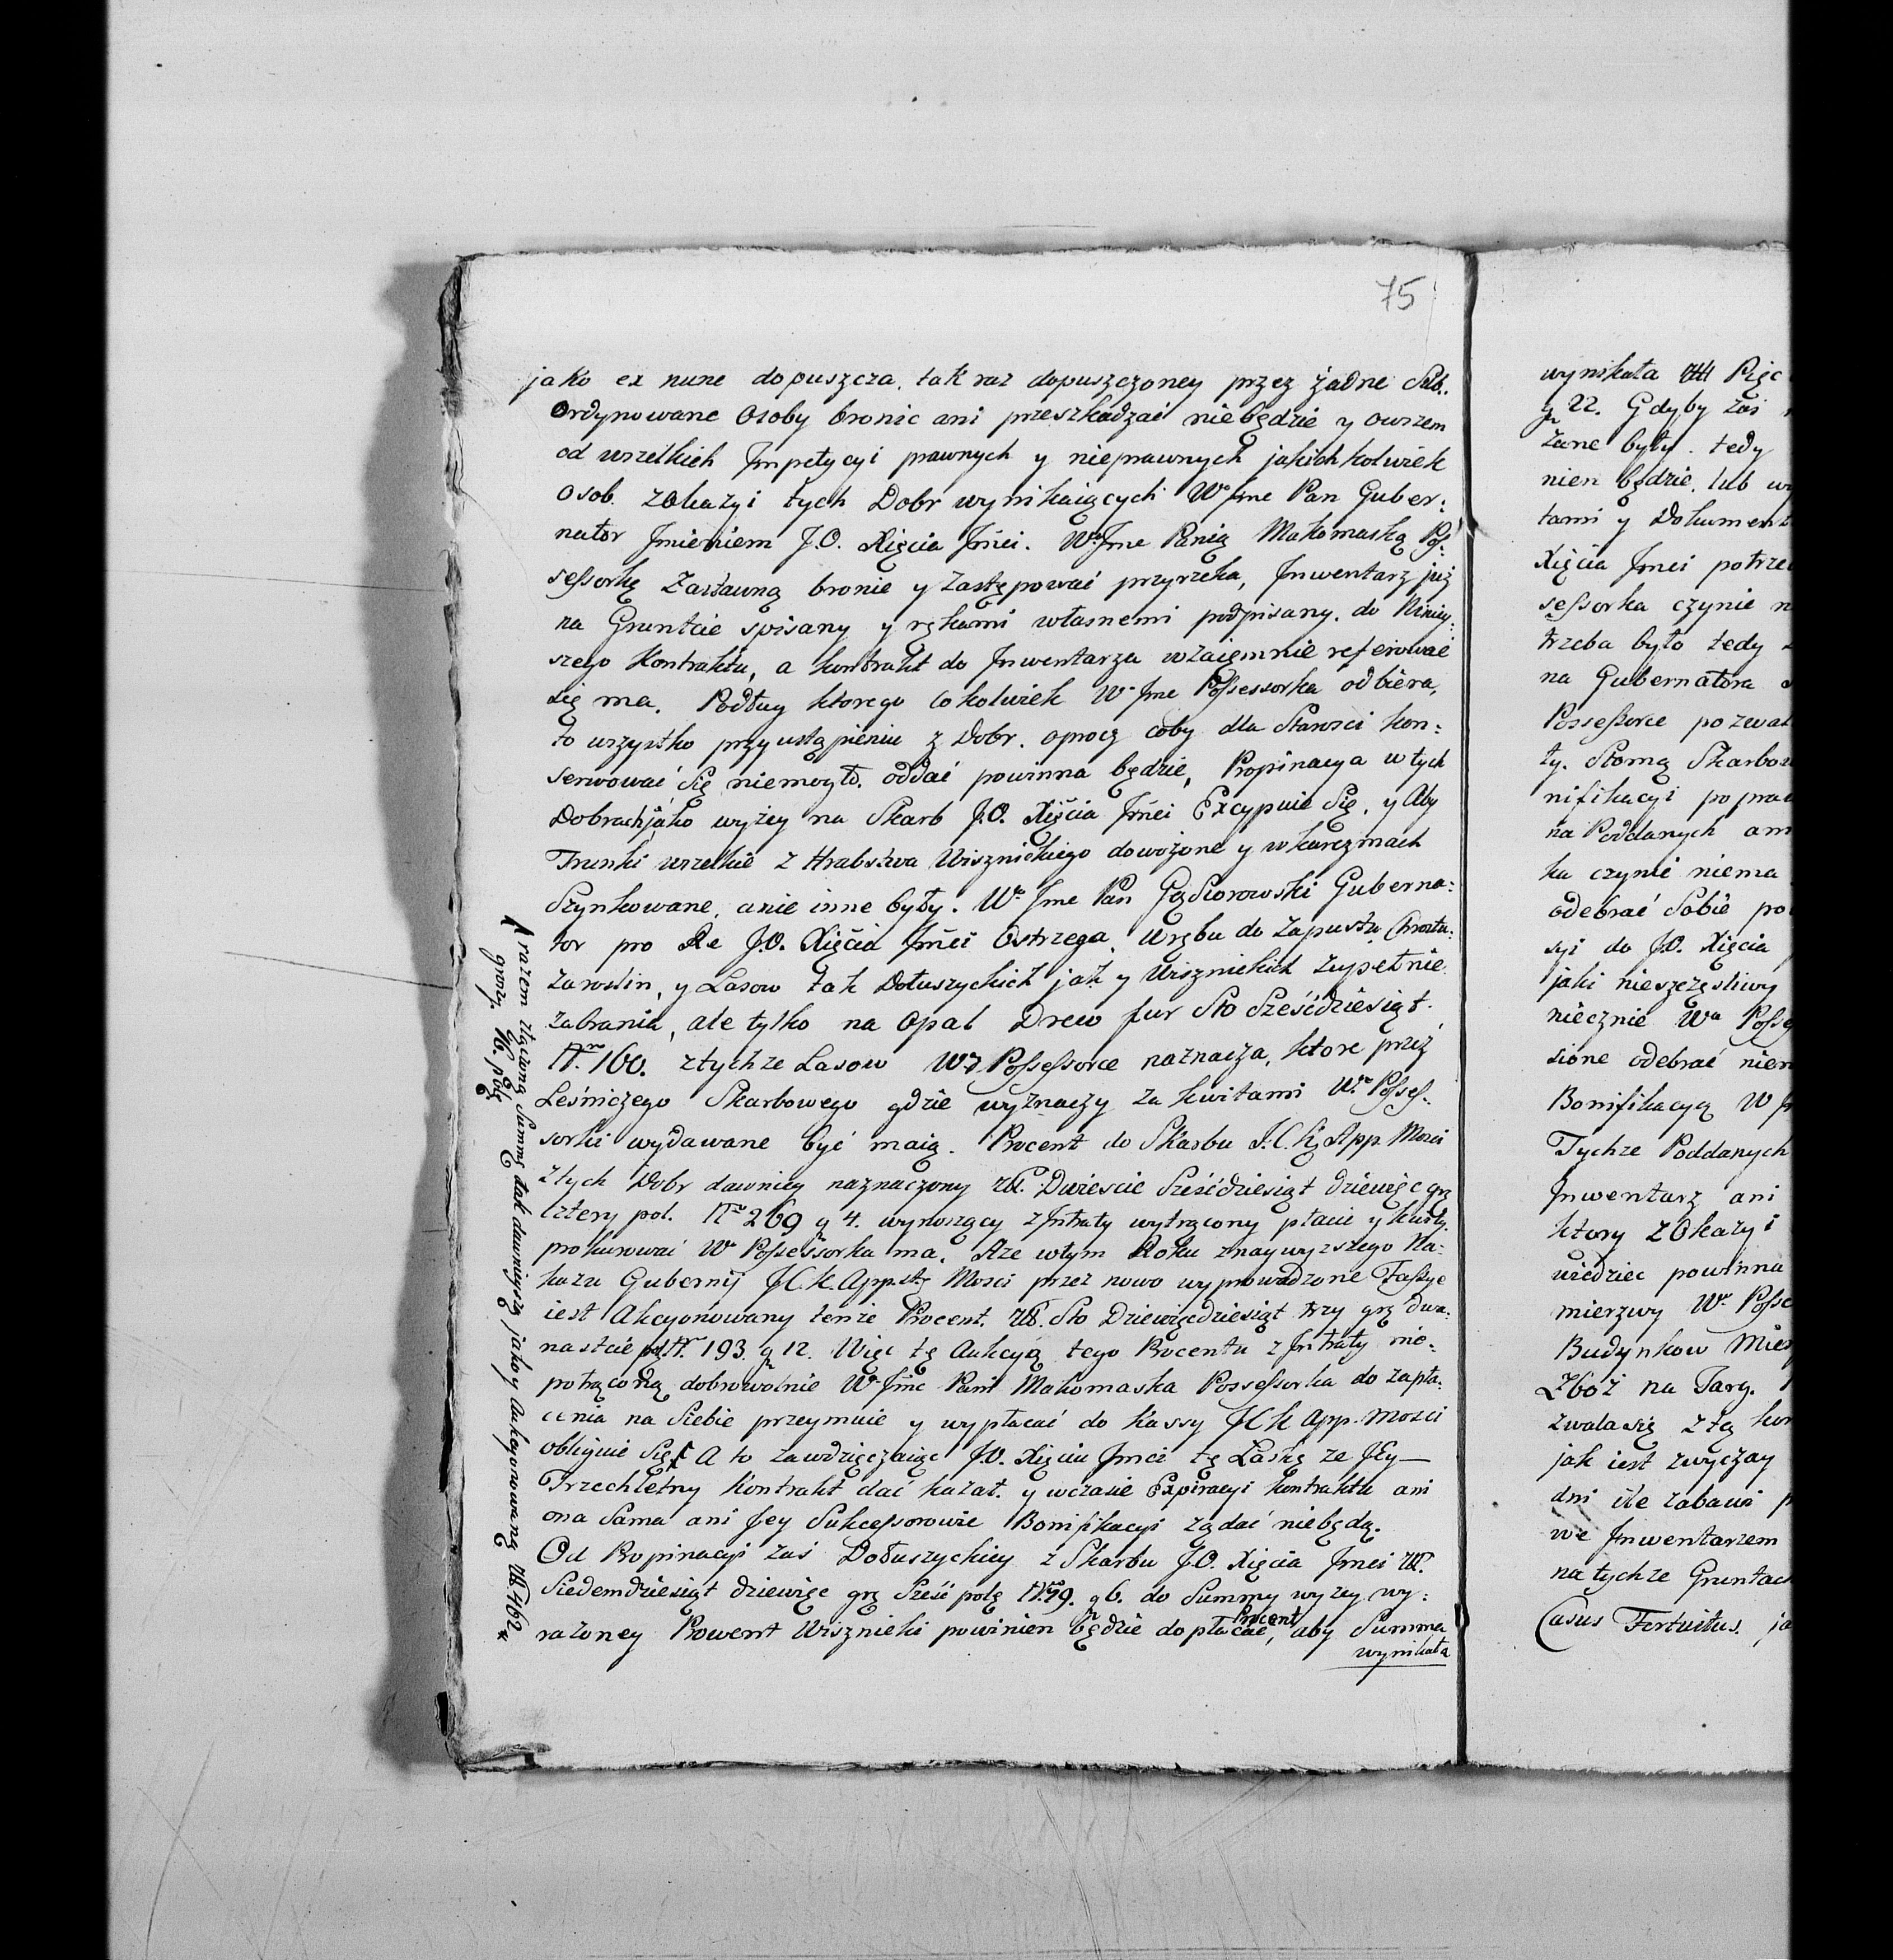 75
jako ex nunc dopuszcza, tak raz dopuszczoney przez żadne Sub:
Ordynowane Osoby bronic ani przeszkadzać niebędzie y owszem
od wszelkich Jmpetycyi prawnych y nieprawnych jakichkolwiek
osob. zokazyi tych Dobr wynikaiących Wny Jme Pan Guber:
nator Jmieniem J.O. Xięcia Jmci. Wną Jme Panią Makomaską Pos:
sessorkę Zastawną bronic y Zastępować przyrzeka, Jnwentarz już
na Gruntcie spisany y rękami własnemi podpisany. do Niniey:
szego Kontraktu, a kontrakt do Jnwentarza wzaięmnie referować
się ma. Podług ktorego cokolwiek W. Jme Possessorka odbiera,
to wszystko przy ustąpieniu z Dobr. oprocz coby dla Starosci kon:
serwować Się niemogło. oddać powinna będzie, Propinacya w tych
Dobrach jako wyżey na Skarb J.O. Xięcia Jmći Excypuie Się, y Aby
Trunki wszelkie z Hrabstwa Wisznickiego dowożone y w karczmach
Szynkowane, a nie inne były. Wny Jme Pan Gąsiorowski Guberna:
tor pro Re J.O. Xięcia Jmći Ostrzega, Wrębu do Zapustu, Chrostu:
zaroslin, y Lasow tak Dołuszyckich jak y Wisznickich zupełnie
zabrania, ale tylko na Opał Drew fur Sto Sześćdziesiąt.
Nro 160. ztychze Lasow Wy Possessorce naznacza, ktore przez
Leśniczego Skarbowego gdzie wyznaczy za kwitami Wy Posses:
sorki wydawane być maią. Procent do Skarbu J.C.K. App Mosci
ztych Dobr dawniey naznaczony Złł. Dwiescie Sześćdziesiąt dziewięc grz
cztery pol. Nro 269 g 4. wynoszący zJntraty wytrącony płacic y kwity
prokurować Wa Possessorka ma. Aze wtym Roku znaywyzszego Na:
kazu Gubernij J.C.K. App. Mosci przez nowo wyprowadzone Fassye
iest Akcyonowany tenże Procent. Złł. Sto Dziewięcdziesiąt trzy grz dwa:
nascie pol Nro 193. g 12. Więc tę Aukcyą tego Procentu z Jntraty nie:
potrąconą dobrowolnie W Jme Pani Makomaska Possessorka do zapła:
cenia na Siebie przeymuie y wypłacać do Kassy J.C.K. App. Mosci
obliguie Się A to zawdzięczaiąc J.O. Xięciu Jmci tę Łaskę ze Jey
Trzechletny Kontrakt dać kazał. y wczasie Expiracyi kontraktu ani
ona Sama ani Jey Sukcessorowie Bonifikacyi ządać niebędą.
Od Propinacyi zaś Dołuszyckiey z Skarbu J.O. Xięcia Jmci Złł.
Siedemdziesiąt dziewięc grz Sześć polz Nro 79. g 6. do Summy wyzey wy:
razoney Prowent Wisznicki powinien będzie dopłacać Procent, aby Summa
wynikała
razem złączoną Summę tak dawnieyszą jakoy Aukcyonowaną Złł. 462
groszy 16. polz
wynikała Złł Pięc
g 22. Gdyby zaś
zane były. tedy
nien będzie, lub
tami y Dokument
Xięcia Jmci potrze
sessorka czynic
trzeba było tedy
na Gubernatora
Possessorce pozwal
ty. Słomą Skarbow
nifikacyi popra
na Poddanych ani
ka czynić niema
odebrać Sobie po
syi do J.O. Xięcia
jaki nieszczęsliwy
niecznie Wa Posse
sione odebrać nie
Bonifikacyą W
Tychze Poddanych
Jnwentarz ani
ktory zOkazyi
wiedziec powinna
mierzwy Wa Posse
Budynkow Mie
Zboż na Targ.
zwala się z tą
jak iest zwyczay
dni ile zabawi
we Jnwentarzem
na tychze Gruntach
Casus Fortuitus. ja